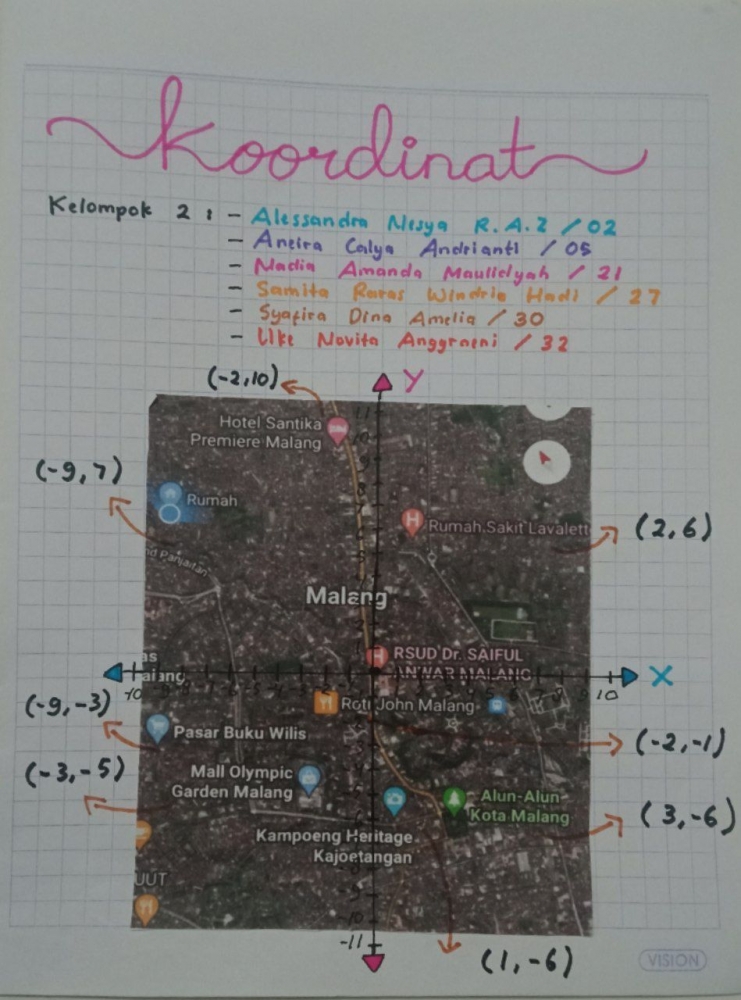 koordinat
Kelompok 2 : - Alessandra Nesya R.A.Z / 02
- Aneira Calya Andrianti / 05
- Nadia Amanda Maulidyah / 21
- Samita Raras Windria Hadi / 27
- Syafira Dina Amelia / 30
- Uke Novita Anggraeni / 32
(-2,10)
Y
Hotel Santika
Premiere Malang
(-9,7)
Rumah
Rumah Sakit Lavalett
(2,6)
nd Panjaitan
Malang
RSUD Dr. SAIFUL
ANWAR MALANG
as
alang
X
-10
10
(-9,-3)
Roti John Malang
Pasar Buku Wilis
(-2,-1)
(-3,-5)
Mall Olympic
Garden Malang
Alun-Alun
Kota Malang
(3,-6)
Kampoeng Heritage
Kajoetangan
UUT
-11
(1,-6)
VISION